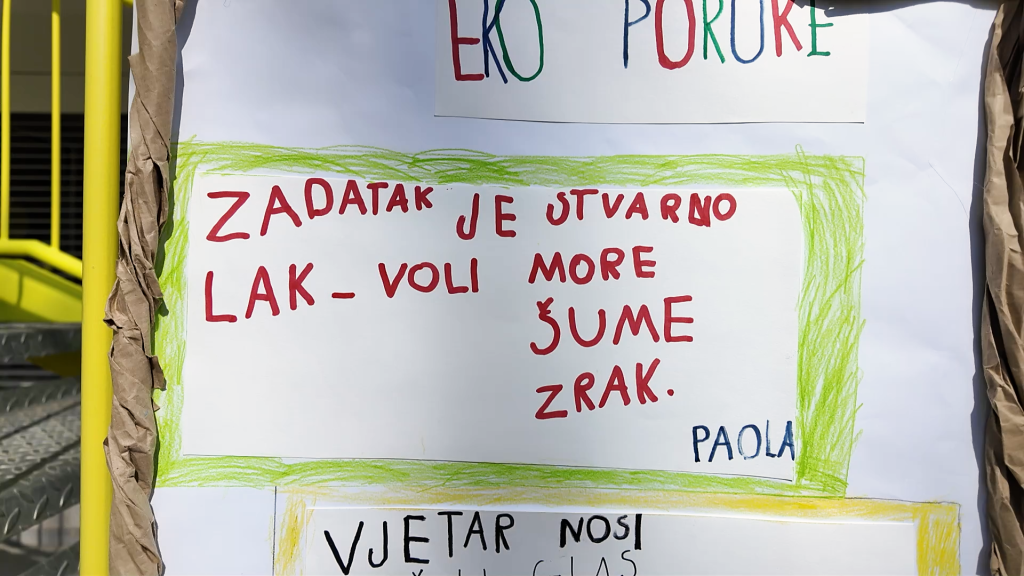 EKO PORUKE
ZADATAK JE STVARNO
LAK - VOLI MORE
ŠUME
ZRAK.
PAOLA
VJETAR NOSI
GLAS